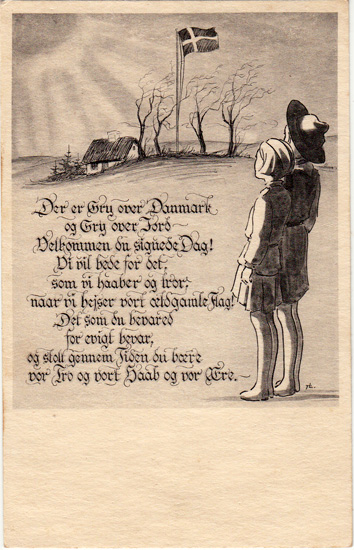 Der er Gry over Danmark
og Gry over Jord
Velkommen du signede Dag!
Vi vil bede for det,
som vi haaber og tror,
naar vi hejser vort ældgamle Flag!
Det som du bevared
for evigt bevar,
og stolt gennem Tiden du bære
vor Tro og vort Haab og vor Ære.-